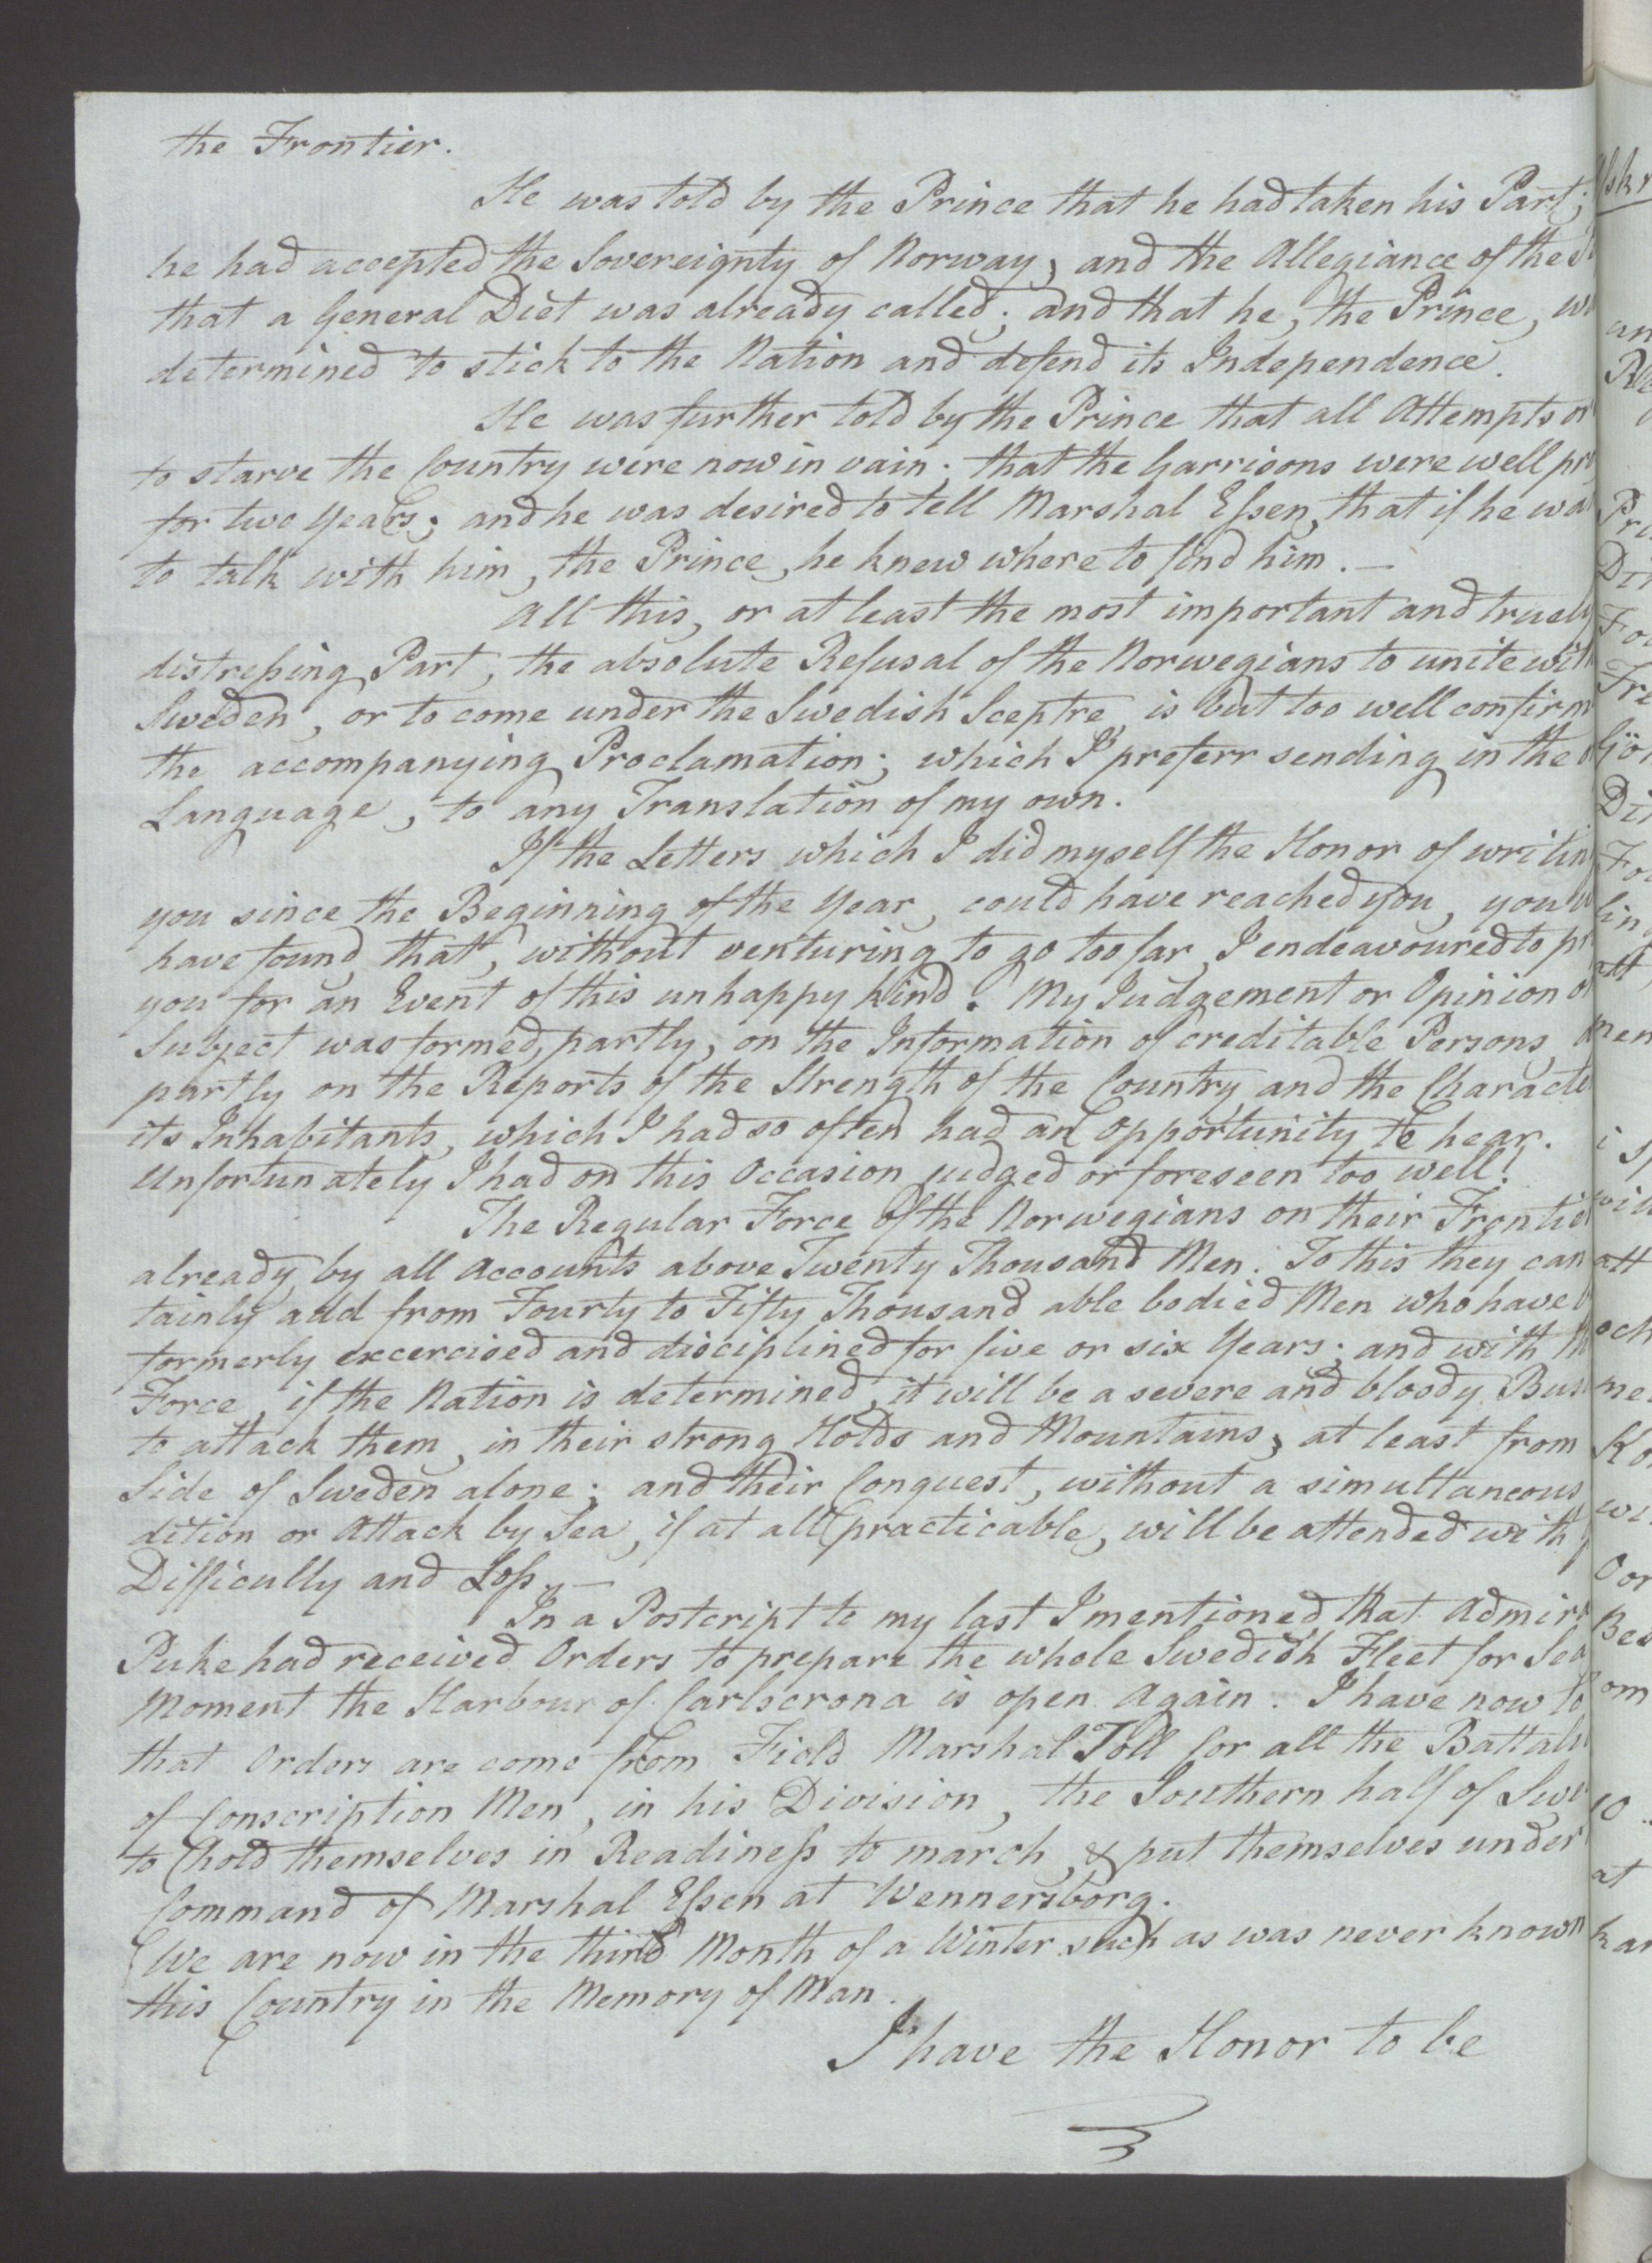 the Frontier.
He was told by the Prince that he had taken his Part;
he had accepted the Sovereignty of Norway, and the Allegiance of the
that a General Diet was already called; and that he, the Prince,
determined to stick to the Nation and defend its Independence.
He was further told by the Prince that all Attempts
to starve the Country were now in vain; that the Garrisons were well
for two Years; and he was desired to tell Marshal Essen, that if he
to talk with him, the Prince, he knew where to find him. —
All this, or at least the most important and truely
distressing Part, the absolute Refusal of the Norwegians to unite with
Sweden, or to come under the Swedish Sceptre, is but too well confirm
the accompanying Proclamation; which I preferr sending in the
Language, to any Translation of my own.
If the Letters which I did myself the Honor of writin
you since the Beginning of the Year, could have reached you, you
have found that, without venturing to go too far, I endeavoured to
you for an Event of this unhappy kind. My Judgement or Opinion
Subject was formed, partly, on the Information of creditable Persons,
partly on the Reports of the Strength of the Country and the Characte
its Inhabitants, which I had so often had an Opportunity to hear.
Unfortunately I had on this Occasion judged or foreseen too well!
The Regular Force of the Norwegians on their Frontie
already by all Accounts above Twenty Thousand Men. To this they can
tainly add from Fourty to Fifty Thousand able bodied Men who have
formerly excercised and disciplined for five or six Years; and with
Force, if the Nation is determined, it will be a severe and bloody Bus
to attack them, in their strong Holds and Mountains, at least from
Side of Sweden alone; and their Conquest, without a simultaneous
dition or Attack by Sea, if at all practicable, will be attended with
Difficully and Loss. —
In a Postcript to my last I mentioned that Admir
Puke had received Orders to prepare the whole Swedish Fleet for Sea
Moment the Harbour of Carlscrona is open Again. I have now to
that Orders are come from Field Marshal Toll for all the Battali
of Conscription Men, in his Division, the Southern half of Swe
to hold themselves in Readiness to march, & put themselves under
Command of Marshal Essen at Wennersborg.
We are now in the third Month of a Winter such as was never known
this Country in the Memory of Man.
I have the Honor to be